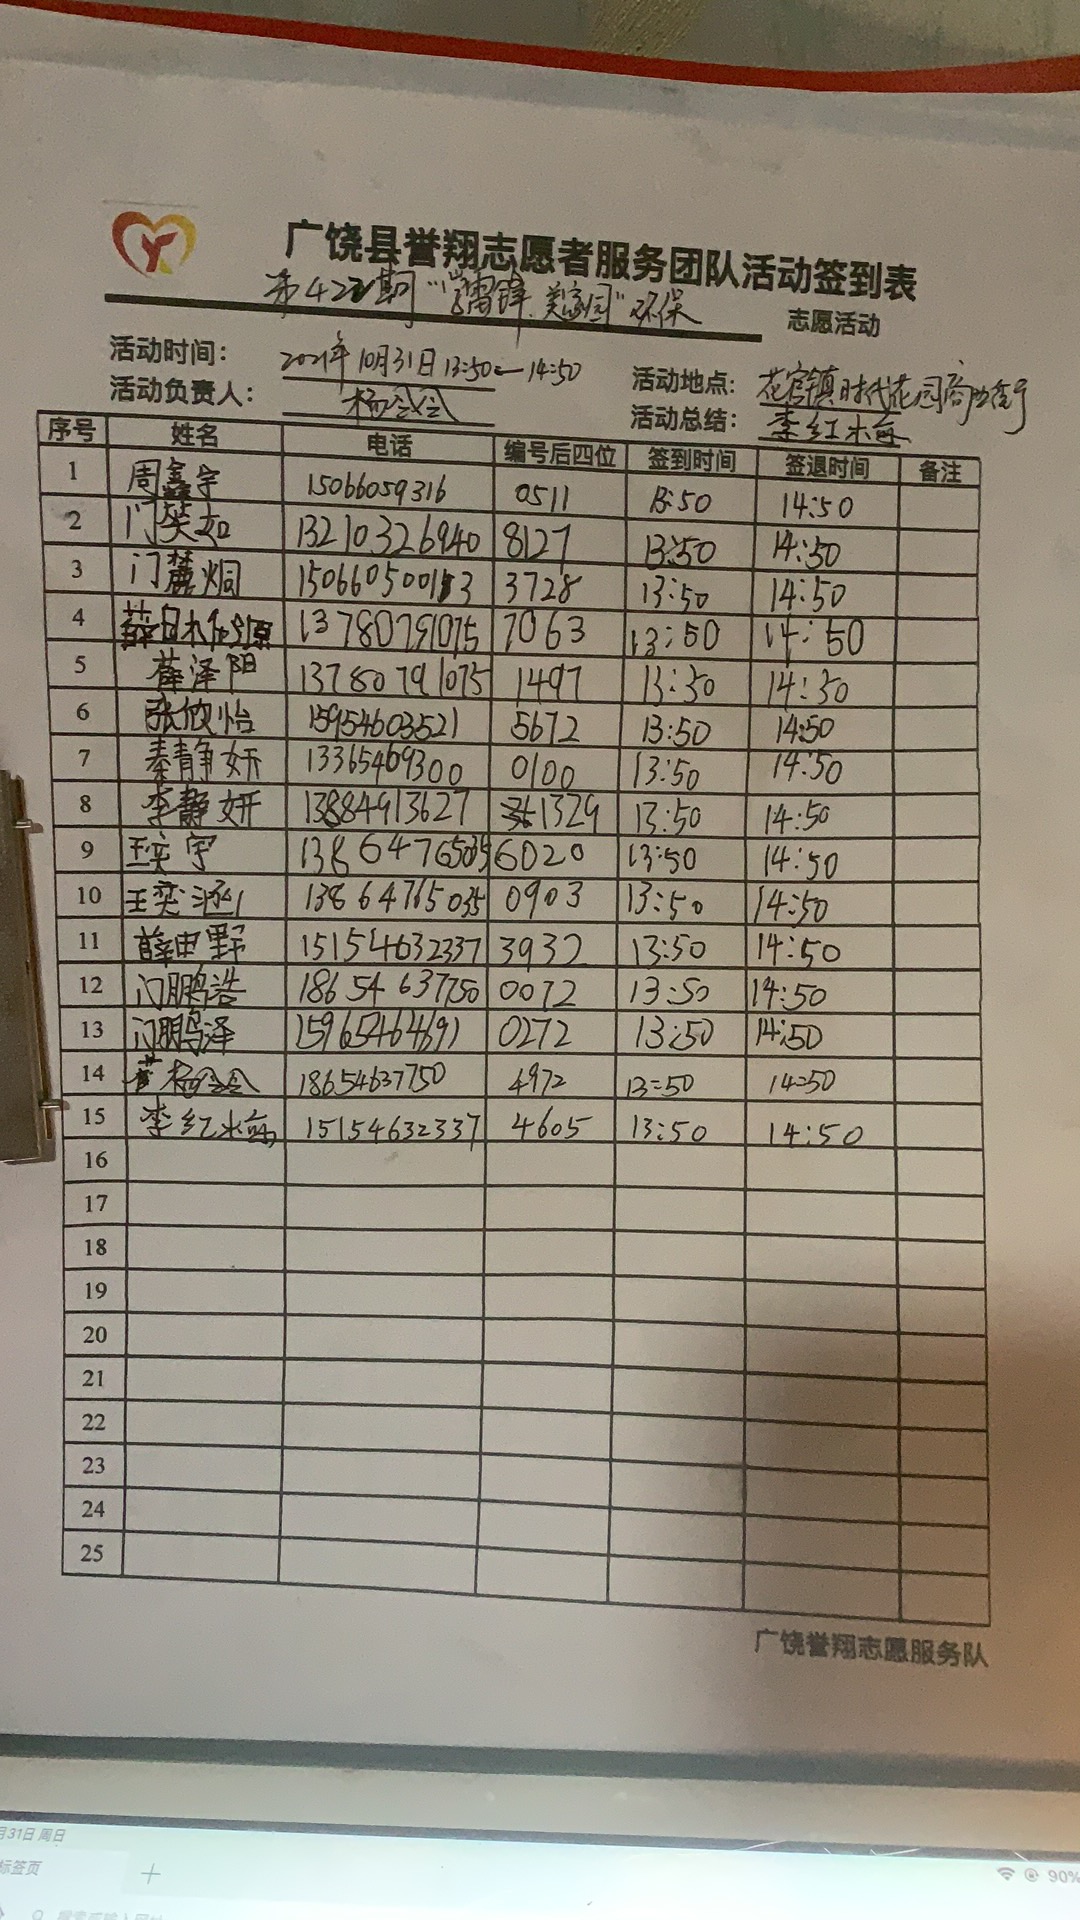 广饶县誉翔志愿者服务团队活动签到表
第422期"学雷锋.美家园"环保 志愿活动
活动时间： 2021年10月31日13:50—14:50 活动地点： 花官镇时代花园商业街
活动负责人： 杨会会 活动总结： 李红梅
序号 姓名 电话 编号后四位 签到时间 签退时间 备注
1 周鑫宇 15066059316 0511 13:50 14:50
2 门樊如 13210326940 8127 13:50 14:50
3 门麓炯 150660500113 3728 13:50 14:50
4 13780791075 7063 13:50 14:50
5 薛泽阳 13780791075 1497 13:50 14:50
6 张依怡 15954603521 5672 13:50 14:50
7 秦静妍 13365409300 0100 13:50 14:50
8 李静妍 13884913627 1329 13:50 14:50
9 王奕宇 13864765035 6020 13:50 14:50
10 王奕涵 13864765035 0903 13:50 14:50
11 薛由野 15154632337 3932 13:50 14:50
12 门鹏浩 18654637750 0072 13:50 14:50
13 门鹏泽 15965464691 0272 13:50 14:50
14 杨会会 18654637750 4972 13=50 14=50
15 李红梅 15154632337 4605 13:50 14:50
16
17
18
19
20
21
22
23
24
25
广饶誉翔志愿服务队
月31日 周日
标签页
90%
搜索或输入网站